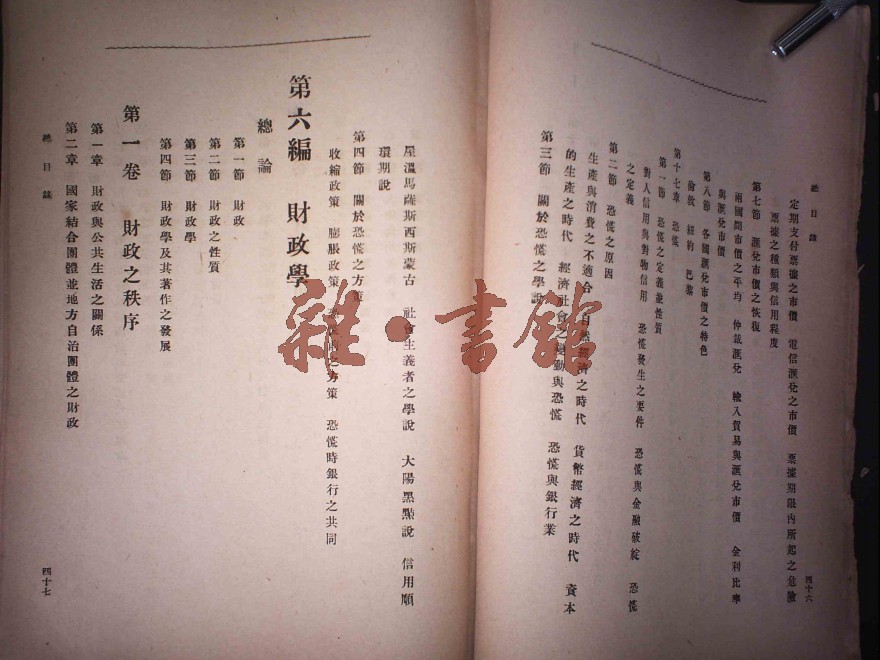 總目錄
四十六
定期支付票據之市價 電信滙兌之市價 票據期限內所起之危險
票據之種類與信用程度
第七節 滙兌市價之恢復
兩國間市價之平均 仲裁滙兌 輸入貿易與滙兌市價 金利比率
與滙兌市價
第八節 各國滙兌市價之特色
倫敦 紐約 巴黎
第十七章 恐慌
第一節 恐慌之定義並性質
對人信用與對物信用 恐慌發生之要件 恐慌與金融破綻 恐慌
之定義
第二節 恐慌之原因
生產與消費之不適合 自然經濟之時代 貨幣經濟之時代 資本
的生產之時代 經濟社會之變動與恐慌 恐慌與銀行業
第三節 關於恐慌之學說
屋溫馬薩斯西斯蒙古 社會主義者之學說 大陽黑點說 信用順
環期說
第四節 關於恐慌之方策
收縮政策 膨脹政策 恐慌時之方策 恐慌時銀行之共同
第六編 財政學
總論
第一節 財政
第二節 財政之性質
第三節 財政學
第四節 財政學及其著作之發展
第一卷 財政之秩序
第一章 財政與公共生活之關係
第二章 國家結合團體並地方自治團體之財政
總目錄
四十七
雜·書館